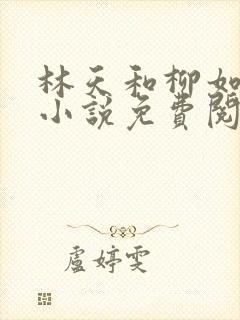 林天和柳如
小說免費閱
盧婷雯